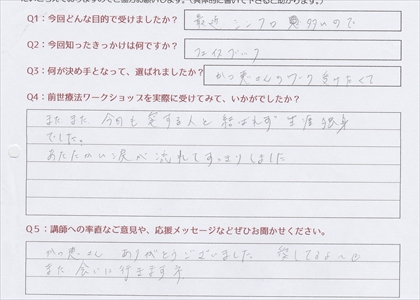 Q1：今回どんな目的で受けましたか？ 最近 シンクロ 多いので
Q2：今回知ったきっかけは何ですか？ フェイスブック
Q3：何が決め手となって、選ばれましたか？ かつ恵さんのワーク 受けたくて
Q4：前世療法ワークショップを実際に受けてみて、いかがでしたか？
またまた 今回も 愛する人と 結ばれず 生涯独身
でした。
あたたかい涙が 流れて すっきりしました
Q5：講師への率直なご意見や、応援メッセージなどぜひお聞かせください。
かつ恵さん ありがとうございました 愛してるよ〜
また 会いに 行きます